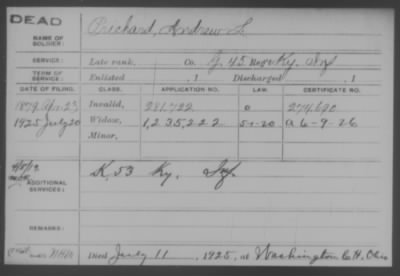 DEAD
NAME OF SOLDIER: Prichard, Andrew L.
SERVICE: Late rank, Co. G, 45 Reg't Ky. Inf
TERM OF SERVICE: Enlisted , 1 Discharged , 1
DATE OF FILING. CLASS. APPLICATION NO. LAW. CERTIFICATE NO.
1879 Apr. 23 Invalid, 281,722 0 274,690
1925 July 20 Widow, 1,235,222 5-1-20 A 6-9-26
Minor,
ADDITIONAL SERVICES: K, 53 Ky. Inf.
REMARKS:
Died July 11, 1925, at Washington C.H. Ohio